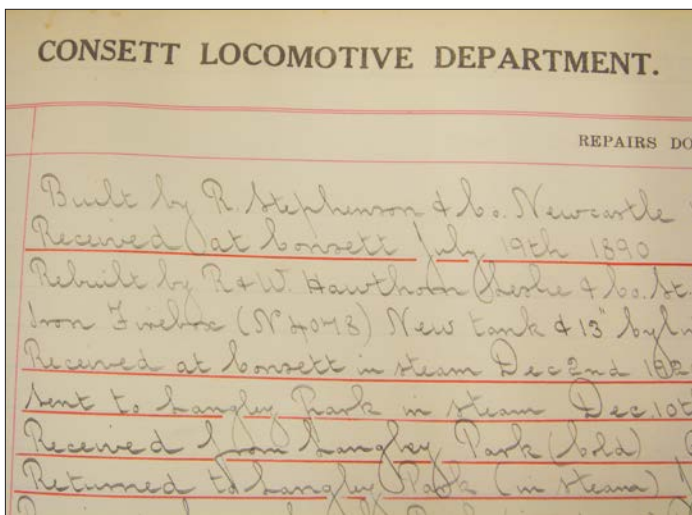 CONSETT LOCOMOTIVE DEPARTMENT.
REPAIRS DO
Built by R. Stephenson & Co. Newcastle
Received at Consett July 19th 1890
Rebuilt by R & W. Hawthorn Leslie & Co. St
Iron Firebox New tank & 13" Cylin
Received at Consett in steam Dec 2nd
Sent to Langley Park in steam Dec. 10t
Received from Langley Park (Cold)
Returned to Langley Park (in steam)